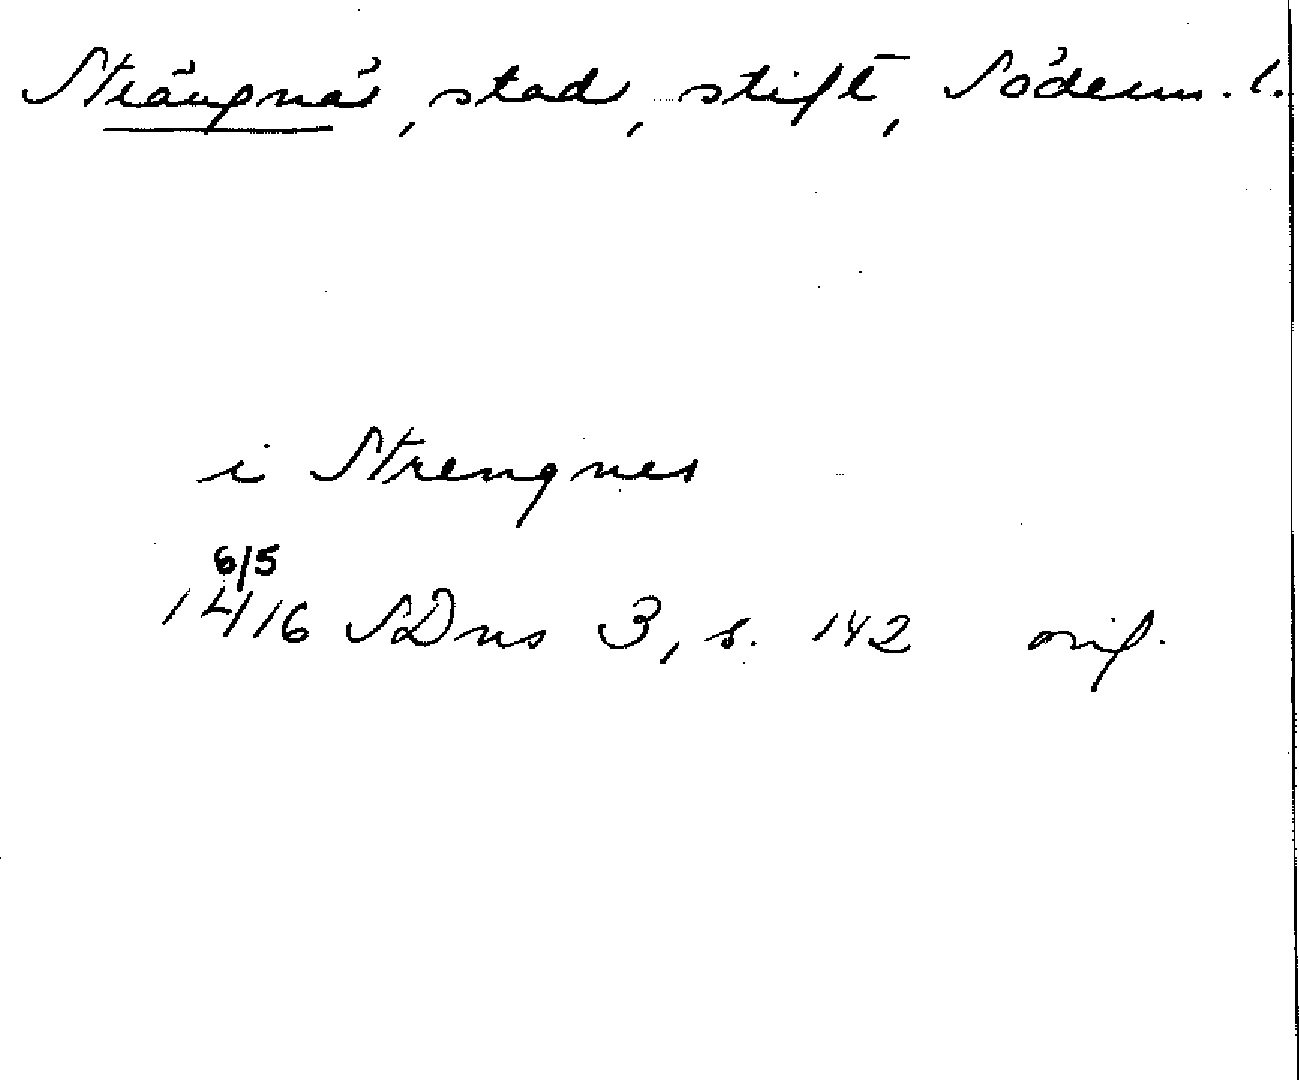 Strängnäs, stad, stift, Söderm. l.
i Strengnes
6/5
1416 SDns 3, s. 142 orig.